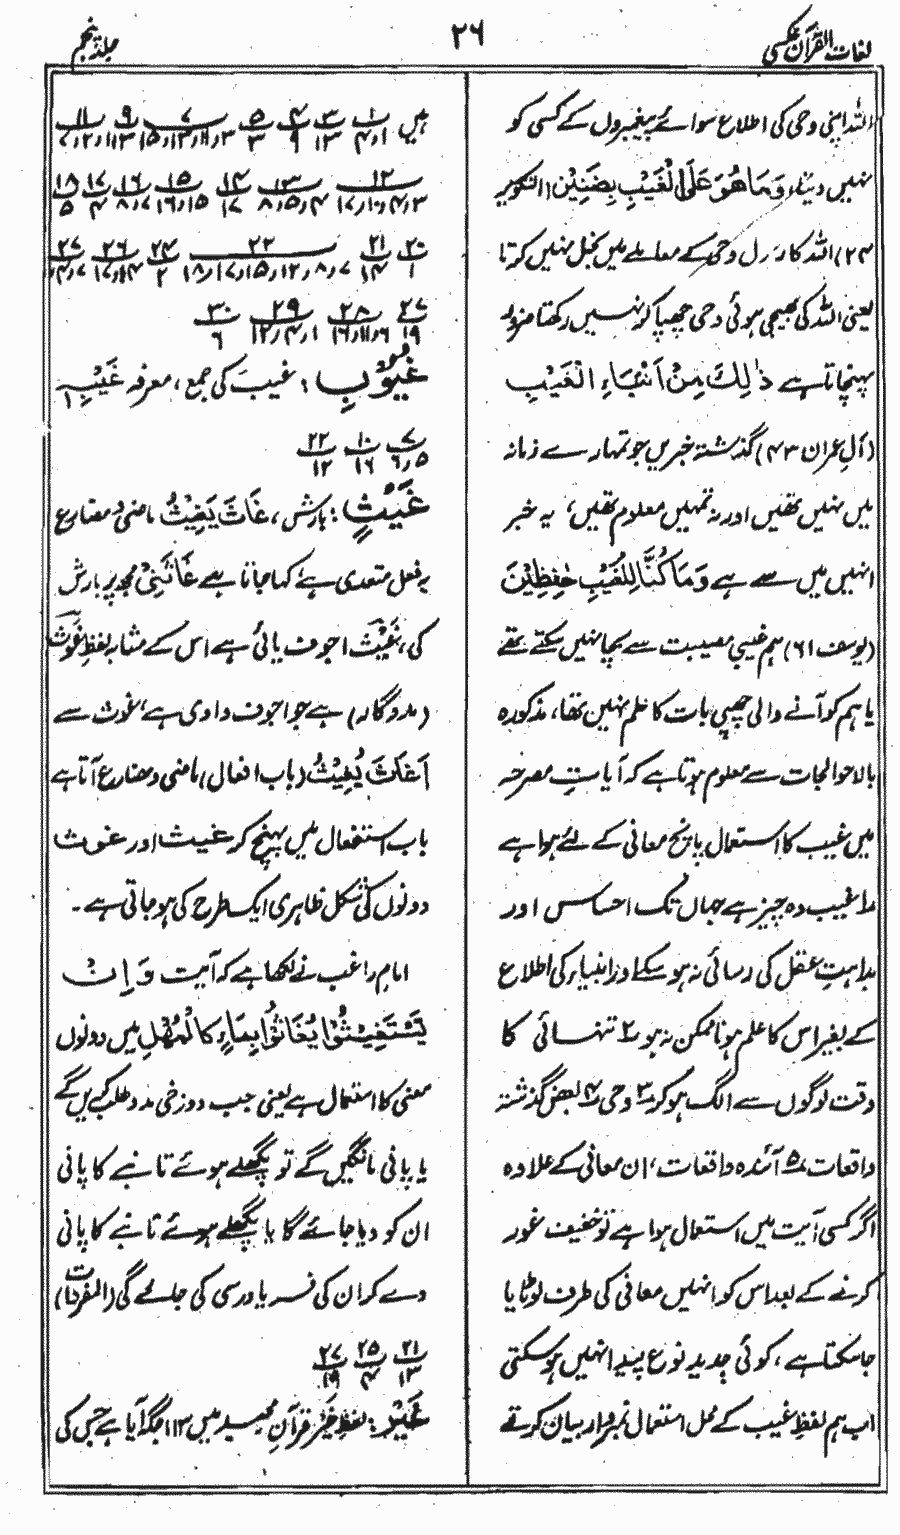 لغات القرآن عکسی
۲۶
جلد پنجم
اللہ اپنی وحی کی اطلاع سوائے پیغمبروں کے کسی کو
نہیں دیتا، وَمَا هُوَ عَلَى الْغَيْبِ بِضَنِيْنٍ (التکویر
۲۴) اللہ کا رسول وحی کے معاملے میں بخل نہیں کرتا
یعنی اللہ کی بھیجی ہوئی وحی چھپا کر نہیں رکھتا ضرور
پہنچاتا ہے ذٰلِكَ مِنْ اَنْۢبَاءِ الْغَيْبِ
(آل عمران ۴۳) گذشتہ خبریں جو تمہارے زمانہ
میں نہیں تھیں اور نہ تمہیں معلوم تھیں، یہ خبر
انہیں میں سے ہے وَمَا كُنَّا لِلْغَيْبِ حٰفِظِيْنَ
(یوسف ۶۱) ہم غیبی مصیبت سے بچا نہیں سکتے تھے
یا ہم کو آنے والی چھپی بات کا علم نہیں تھا، مذکورہ
بالا حوالجات سے معلوم ہوتا ہے کہ آیاتِ مصرحہ
میں غیب کا استعمال پانچ معانی کے لئے ہوا ہے
۱؎ غیب وہ چیز ہے جہاں تک احساس اور
بداہتِ عقل کی رسائی نہ ہو سکے اور انبیاء کی اطلاع
کے بغیر اس کا علم ہونا ممکن نہ ہو ۲؎ تنہائی کا
وقت لوگوں سے الگ ہو کر ۳؎ وحی ۴؎ بعض گذشتہ
واقعات ۵؎ آئندہ واقعات، ان معانی کے علاوہ
اگر کسی آیت میں استعمال ہوا ہے تو خفیف غور
کرنے کے بعد اس کو انہیں معانی کی طرف لوٹایا
جاسکتا ہے، کوئی جدید نوع پیدا نہیں ہو سکتی
اب ہم لفظ غیب کے محل استعمال نمبروار بیان کرتے
ہیں ۱ ۳ ۴ ۵ ۷ ۹ ۱۱
۱،۴ ۱۳ ۹ ۳ ۳،۱۱،۱۳،۱۵ ۱۳ ۱،۲،۷
۱۲ ۱۳ ۱۴ ۱۵ ۱۶ ۱۷ ۱۸
۳،۴،۱۰،۱۷ ۴،۵،۸ ۱۷ ۱۵،۱۶ ۷،۸ ۴ ۵
۲۰ ۲۱ ۲۲ ۲۴ ۲۶ ۲۷
۱ ۱۴ ۷،۸،۱۲،۱۵،۱۷،۱۸ ۲ ۱۴،۱۷
۲۷ ۲۸ ۲۹ ۳۰
۱۹ ۶،۱۱،۱۶ ۱،۴،۱۲ ۶
غُیُوْبِ: غیبَ کی جمع، معرفہ غَيْبِہٖ
۷ ۱۰ ۲۲
۵،۶ ۱۶ ۱۲
غَیْثٍ: بارش، غَاثَ يَغِيْثُ ماضی و مضارع
یہ فعل متعدی ہے، کہا جاتا ہے غَاثَنِیْ مجھ پر بارش
کی، غَيْثٌ اجوف یائی ہے اس کے مشابہ لفظ غَوْثٌ
(مددگار) ہے جو اجوف واوی ہے، غوث سے
اَغَاثَ يُغِيْثُ (باب افعال) ماضی و مضارع آتا ہے
باب استفعال میں پہنچ کر غیث اور غوث
دونوں کی شکل ظاہری ایک طرح کی ہو جاتی ہے۔
امام راغب نے لکھا ہے کہ آیت وَاِنْ
يَسْتَغِيْثُوْا يُغَاثُوْا بِمَاءٍ كَالْمُهْلِ میں دونوں
معنی کا استعمال ہے یعنی جب دوزخی مدد طلب کریں گے
یا پانی مانگیں گے تو پگھلے ہوئے تانبے کا پانی
ان کو دیا جائے گا یا پگھلے ہوئے تانبے کا پانی
دے کر ان کی فریاد رسی کی جائے گی (المفردات)
۲۱ ۲۵ ۲۷
۱۳ ۴ ۱۹
غَیْرُ: لفظ غَیْر قرآنِ مجید میں ۱۱۳ جگہ آیا ہے جس کی